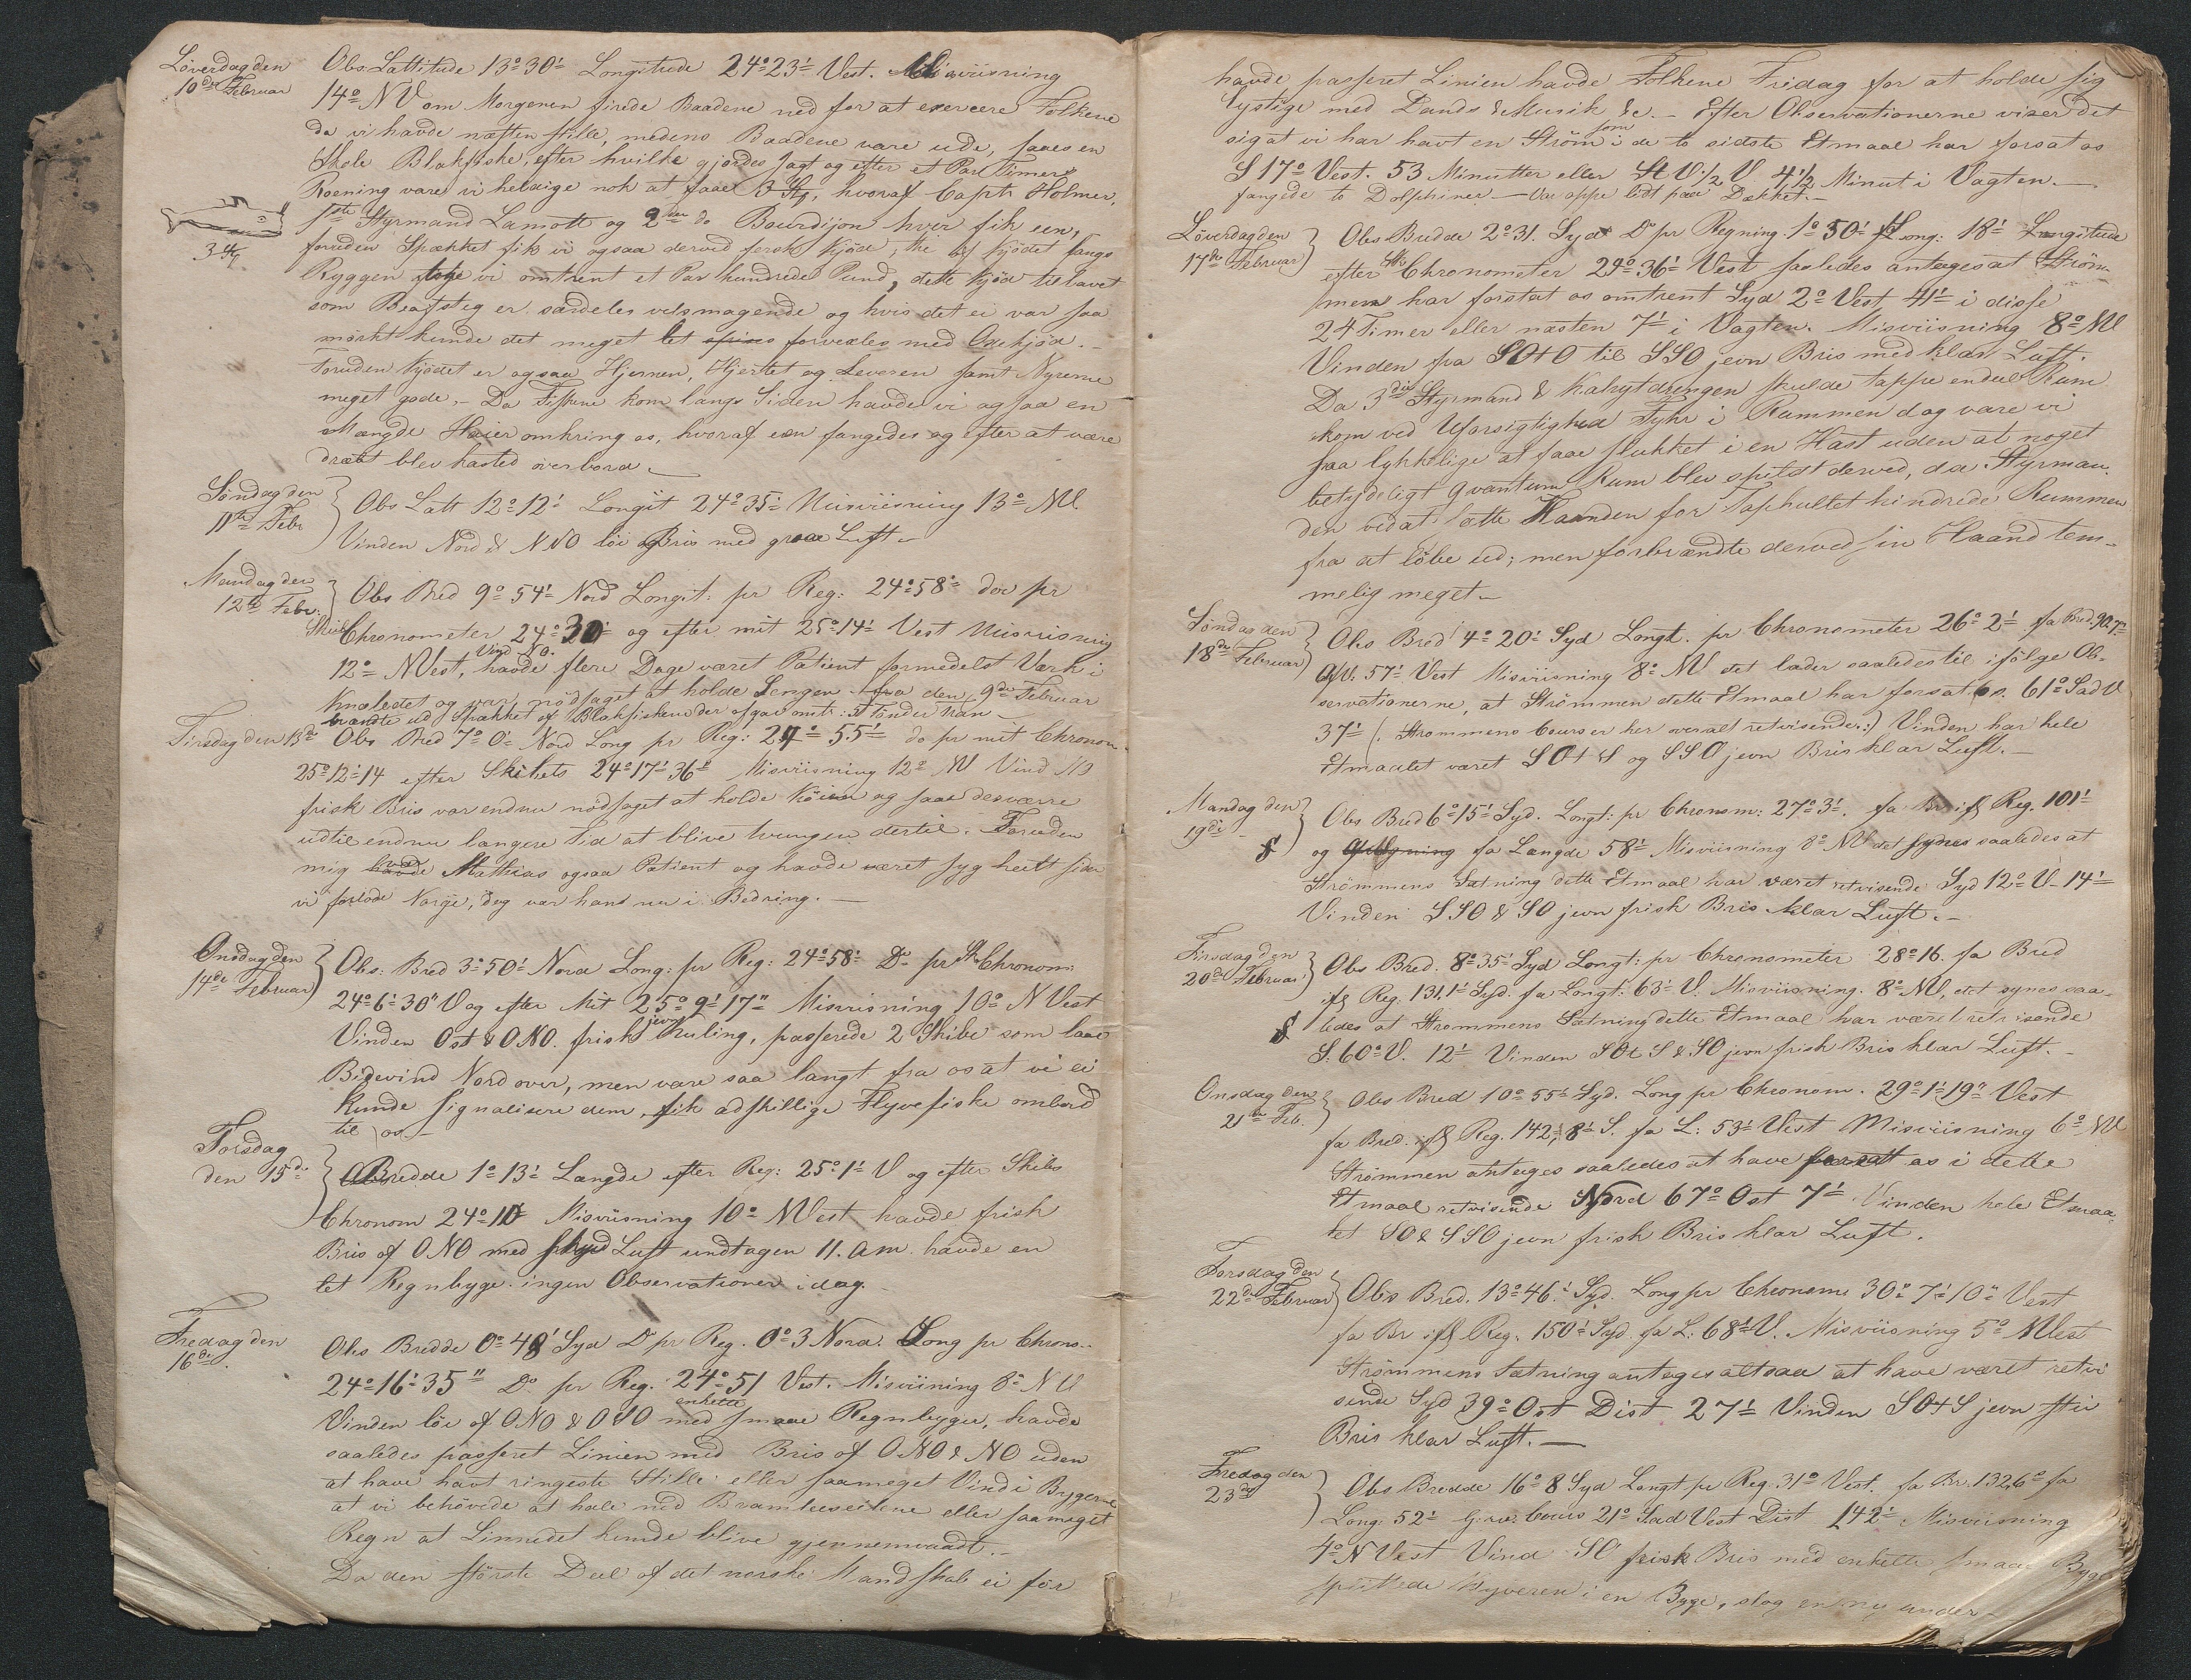 Løverdag den
10de Februar
Obs Lattitude 13° 30' Longitude 24° 23' Vest. Misviisning
14° NV om Morgenen firede Baadene ned for at exercere Folkene
da vi havde næsten stille, medens Baadene vare ude, saaes en
Skole Blakfiske, efter hvilke gjordes Jagt og efter et Par Timers
Roening vare vi heldige nok at faae 3 Stk, hvoraf Captn Holmer,
1ste Styrmand Lamott og 2den do Bourdijon hver fik een,
foruden Spækket fik vi ogsaa derved fersk Kjød, thi af Kjødet langs
3 Stk
Ryggen toge vi omtrent et Par hundrede Pund, dette Kjød tillavet
som Beafsteg er særdeles velsmagende og hvis det ei var saa
mørkt kunde det meget let forvexles med Oxekjød.-
Foruden Kjødet er ogsaa Hjernen, Hjertet og Leveren samt Nyrerne
meget gode.- Da Fiskene kom langs Siden havde vi ogsaa en
Mængde Haier omkring os, hvoraf een fangedes og efter at være
dræbt blev kasted overbord.-
Søndag den
11te Febr
Obs Latt 12° 12' Longit 24° 35' Misviisning 13° NV.
Vinden Nord & NNO løi Bris med graae Luft.-
Mandag den
12te Febr.
Obs Bred 9° 54' Nord Longit: pr Reg: 24° 58' do pr
Skibs Chronometer 24° 30' og efter mit 25° 14' Vest Misviisning
Vind NO.
12° NVest, havde flere Dage været Patient formedelst Værk i
Knæledet og var nødsaget at holde Sengen fra den 9de Februar
brændte ud Spækket af Blakfiskene der afgav omtr: Tønder Tran-
Tirsdag den 13de
Obs Bred 7° 0' Nord Long pr Reg: 24° 55' do pr mit Chronom.
25° 12' 14 efter Skibets 24° 17' 36" Misviisning 12° NV Vind NO
frisk Bris var endnu nødsaget at holde Køien og saae desværre
udtil endnu længere Tid at blive tvungen dertil. Foruden
mig var Mathias ogsaa Patient og havde været syg heelt siden
vi forlode Norge, dog var hand nu i Bedring.-
Onsdag den
14de Februar
Obs: Bred 3° 50' Nord Long: pr Reg: 24° 58' Do pr Sk Chronom:
24° 6' 30" V og efter Mit 25° 9' 17" Misviisning 10° NVest
jevn
Vinden Ost & ONO. frisk Kuling, passerede 2 Skibe som laae
Bidevind Nord over, men vare saa langt fra os at vi ei
kunde signalisere dem, fik adskillige Flyvefiske ombord
til os-
Torsdag
den 15de
Bredde 1° 13' Længde efter Reg: 25° 1' V og efter Skibs
Chronom 24° 10' Misviisning 10° NVest havde frisk
Bris af ONO med Luft undtagen 11. am. havde en
let Regnbyge. ingen Observationer idag.-
Fredag den
16de.
Obs Bredde 0° 48' Syd Do pr Reg. 0° 3 Nord. Long pr Chrono..
24° 16' 35" Do pr Reg. 24° 51 Vest. Misviisning 8° NV
enkelte
Vinden løi af ONO & OSO med smaae Regnbyger, havde
saaledes passeret Linien med Bris af ONO & NO uden
at have havt ringeste Stille eller saameget Vind i Bygerne
at vi behøvede at hale ned Bramleeseilene eller saameget
Regn at Linnedet kunde blive gjennemvaadt.-
Da den største Deel af det norske Mandskab ei før
havde passeret Linien havde Folkene Fridag for at holde sig
lystige med Dands & Musik &c.- Efter Observationerne viser det
som
sig at vi har havt en Strøm i de to sidste Etmaal har forsat os
S 17° Vest. 53 Minutter eller 4½ Minut i Vagten.-
fangede to Dolphiner - Var oppe lidt paa Dækket.-
Løverdag den
17de Februar
Obs Bredde 2° 31. Syd Do pr Regning 1° 50' Long: 18'
efter Chronometer 29° 36' Vest saaledes antages at Strøm-
men har forsat os omtrent Syd 2° Vest 41' i disse
24 Timer eller næsten 7' i Vagten. Misviisning 8° NV
Vinden fra SOtO til SSO jevn Bris med klar Luft.
Da 3die Styrmand & Kahytdrengen skulde tappe endeel Rum
kom ved Uforsigtighed Fyhr i Rummen dog vare vi
saa lykkelige at faae slukket i en Hast uden at noget
betydeligt Qvantum Rum blev spildt derved, da Styrman-
den ved at sætte Haanden for Taphullet hindrede Rummen
fra at løbe ud; men forbrændte derved sin Haand tem-
melig meget.-
Søndag den
18de Februar
Obs Bred 4° 20' Syd Longt. pr Chronometer 26° 2' fa Bred.
57' Vest Misviisning 8° NV det lader saaledes til ifølge Ob-
servationerne, at Strømmen dette Etmaal har forsat os. 61° Syd V
37' (: Strømmens Cours er her overalt retvisende:) Vinden har hele
Etmaalet været SOtS og SSO jevn Bris klar Luft.-
Mandag den
19de -
Obs Bred 6° 15' Syd. Longt: pr Chronom: 27° 3'. fa Br ifl Reg. 101'
og fa Længde 58' Misviisning 8° NV det synes saaledes at
Strømmens Sætning dette Etmaal har været retvisende Syd 12° V- 14'
Vinden SSO & SO jevn frisk Bris klar Luft.-
Tirsdag den
20de Februar
Obs Bred. 8° 35' Syd Longt: pr Chronometer 28° 16. fa Bred
ifl Reg. 131,1' Syd. fa Longt: 63' V. Misviisning. 8° NV, det synes saa-
ledes at Strømmens Sætning dette Etmaal har været retvisende
S. 60° V. 12' Vinden SOtS & SO jevn frisk Bris klar Luft.-
Onsdag den
21de Feb.
Obs Bred 10° 55' Syd. Long pr Chronom. 29° 1' 19" Vest
fa Bred. ifl Reg. 142,8' S. fa L: 53' Vest Misviisning 6° NV
Strømmen antages saaledes at have forsatt os i dette
Etmaal retvisende Nord 67° Ost 7' Vinden hele Etmaa-
let SO & SSO jevn frisk Bris klar Luft.
Torsdag den
22de Februar
Obs Bred. 13° 46.' Syd. Long pr Chronom: 30° 7' 10" Vest
fa Br ifl Reg. 150' Syd fa L: 68' V. Misviisning 5° NVest
Strømmens Sætning antages altsaa at have været retvi
sende Syd 39° Ost Dist 27' Vinden SOtS jevn stiv
Bris klar Luft.-
Fredag den
23de
Obs Bredde 16° 8 Syd Longt pr Reg. 31° Vest. fa Br. 132,6' fa
Long: 52' Cours 21° Syd Vest Dist 142' Misviisning
4° NVest Vind SO frisk Bris med enkelte smaae Byger
splittede Klyveren i en Byge, slog en ny under-